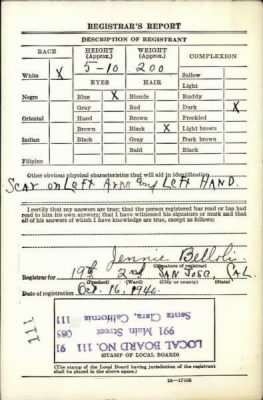 REGISTRAR'S REPORT
DESCRIPTION OF REGISTRANT
RACE HEIGHT (Approx.) WEIGHT (Approx.) COMPLEXION
5-10 200
White X EYES HAIR Sallow
Light
Negro Blue X Blonde Ruddy
Gray Red Dark X
Oriental Hazel Brown Freckled
Brown Black X Light brown
Indian Black Gray Dark brown
Bald Black
Filipino
Other obvious physical characteristics that will aid in identification
Scar on Left Arm and Left HAND.
I certify that my answers are true; that the person registered has read or has had
read to him his own answers; that I have witnessed his signature or mark and that
all of his answers of which I have knowledge are true, except as follows:
Jennie Belloli
(Signature of registrar)
Registrar for 19th 2nd SAN JOSE, CAL.
(Precinct) (Ward) (City or county) (State)
Date of registration Oct. 16, 1940.
LOCAL BOARD NO. 111 91
991 Main Street 085
Santa Clara, California 111
(STAMP OF LOCAL BOARD)
111
(The stamp of the Local Board having jurisdiction of the registrant
shall be placed in the above space.)